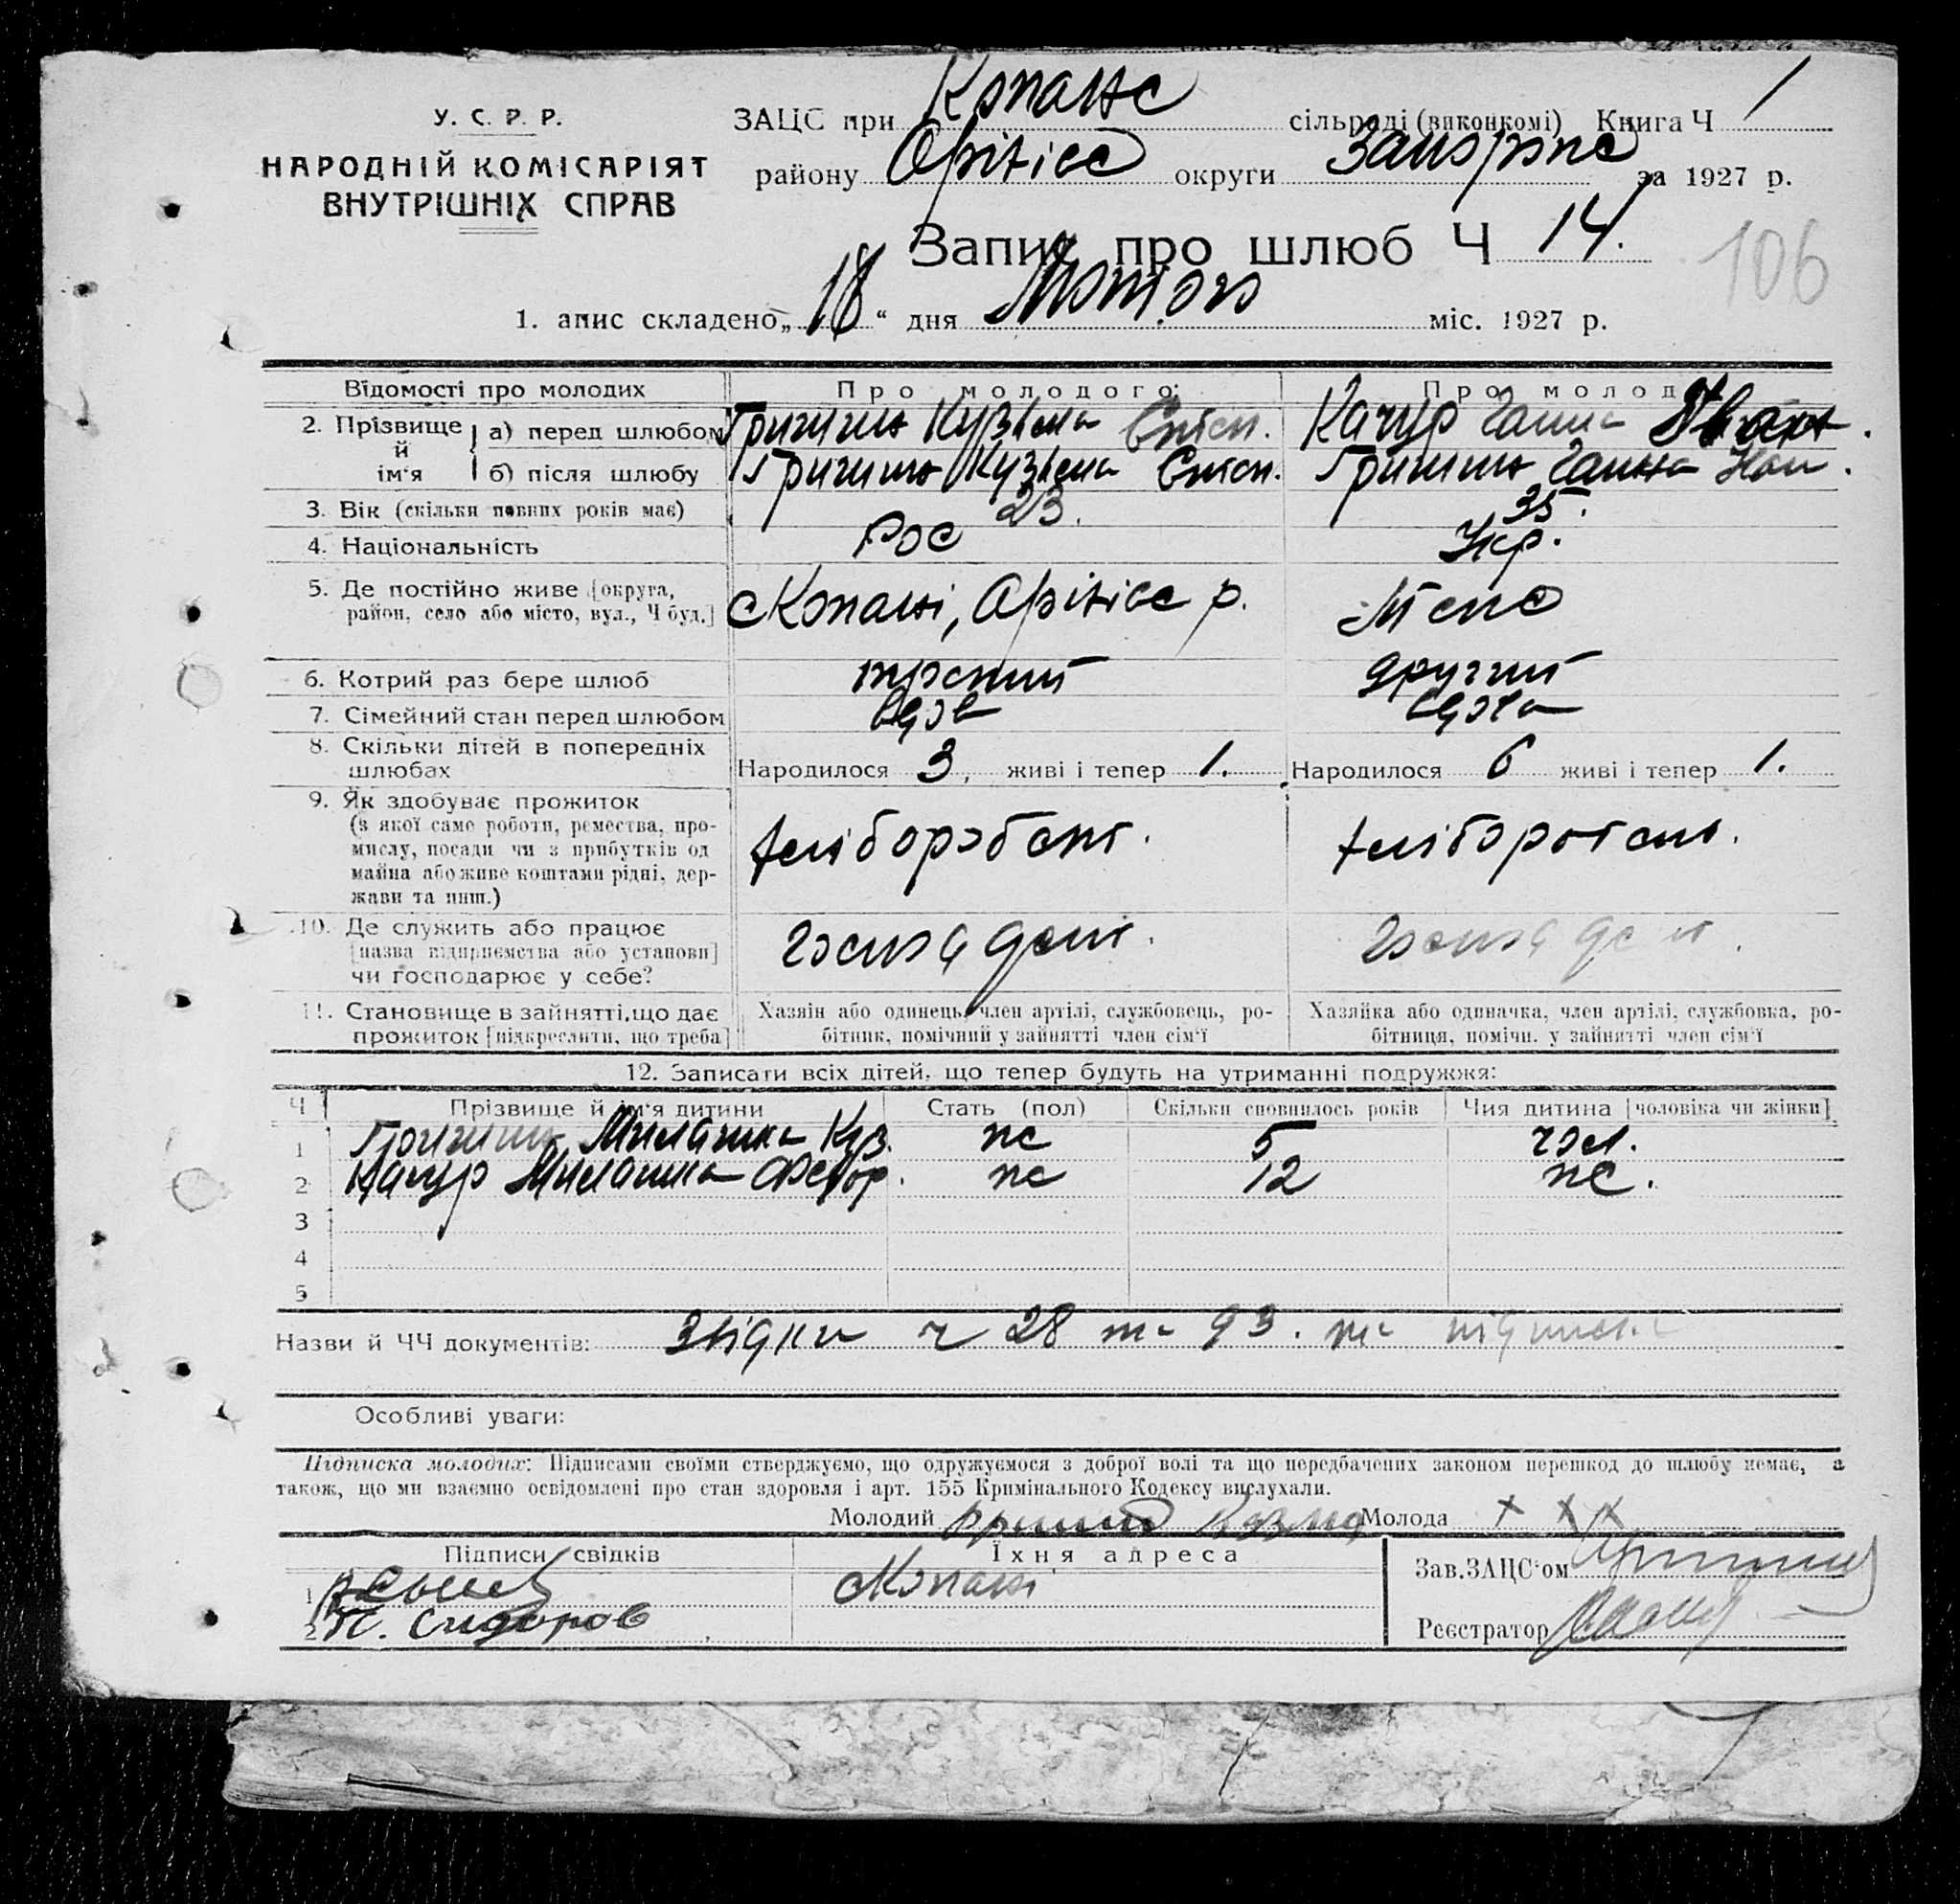 У. С. Р. Р.
НАРОДНІЙ КОМІСАРІЯТ
ВНУТРІШНІХ СПРАВ
ЗАЦС при Копанс сільраді (виконкомі) Книга Ч 1
району Оріхівс округи Запоріж за 1927 р.
Запис про шлюб Ч 14.
106
1. апис складено „18“ дня Жовт міс. 1927 р.
Відомості про молодих
Про молодого:
Про молод
2. Прізвище й ім'я
а) перед шлюбом
Кузьма
Качур Ганна
б) після шлюбу
Кузьма
Ганна
3. Вік (скільки повних років має) 23. 35.
4. Національність Рос Укр.
5. Де постійно живе [округа, район, село або місто, вул., Ч буд.]
с Копані, Оріхівс р.
6. Котрий раз бере шлюб другий
7. Сімейний стан перед шлюбом вдів вдова
8. Скільки дітей в попередніх шлюбах
Народилося 3, живі і тепер 1. Народилося 6 живі і тепер 1.
9. Як здобуває прожиток
(з якої саме роботи, ремества, промислу, посади чи з прибутків од майна або живе коштами рідні, держави та инш.)
хлібороб
10. Де служить або працює
[назва підприємства або установи]
чи господарює у себе?
11. Становище в зайнятті, що дає прожиток [підкреслити, що треба]
Хазяїн або одинець, член артілі, службовець, робітник, помічний у зайнятті член сім'ї
Хазяйка або одиначка, член артілі, службовка, робітниця, помічн. у зайнятті член сім'ї
12. Записати всіх дітей, що тепер будуть на утриманні подружжя:
Ч Прізвище й ім'я дитини Стать (пол) Скільки сповнилось років Чия дитина [чоловіка чи жінки]
1 Миланка Куз. жс 5 чол.
2 Качур Миланка Федор. жс 12 жс.
3
4
5
Назви й ЧЧ документів: Звідки ч 28 та 93.
Особливі уваги:
Підписка молодих: Підписами своїми стверджуємо, що одружуємося з доброї волі та що передбачених законом перешкод до шлюбу немає, а
також, що ми взаємно освідомлені про стан здоровля і арт. 155 Кримінального Кодексу вислухали.
Молодий Молода х х х
Підписи свідків Їхня адреса Зав. ЗАЦС'ом
1 с Копані
2 Сидоров Реєстратор